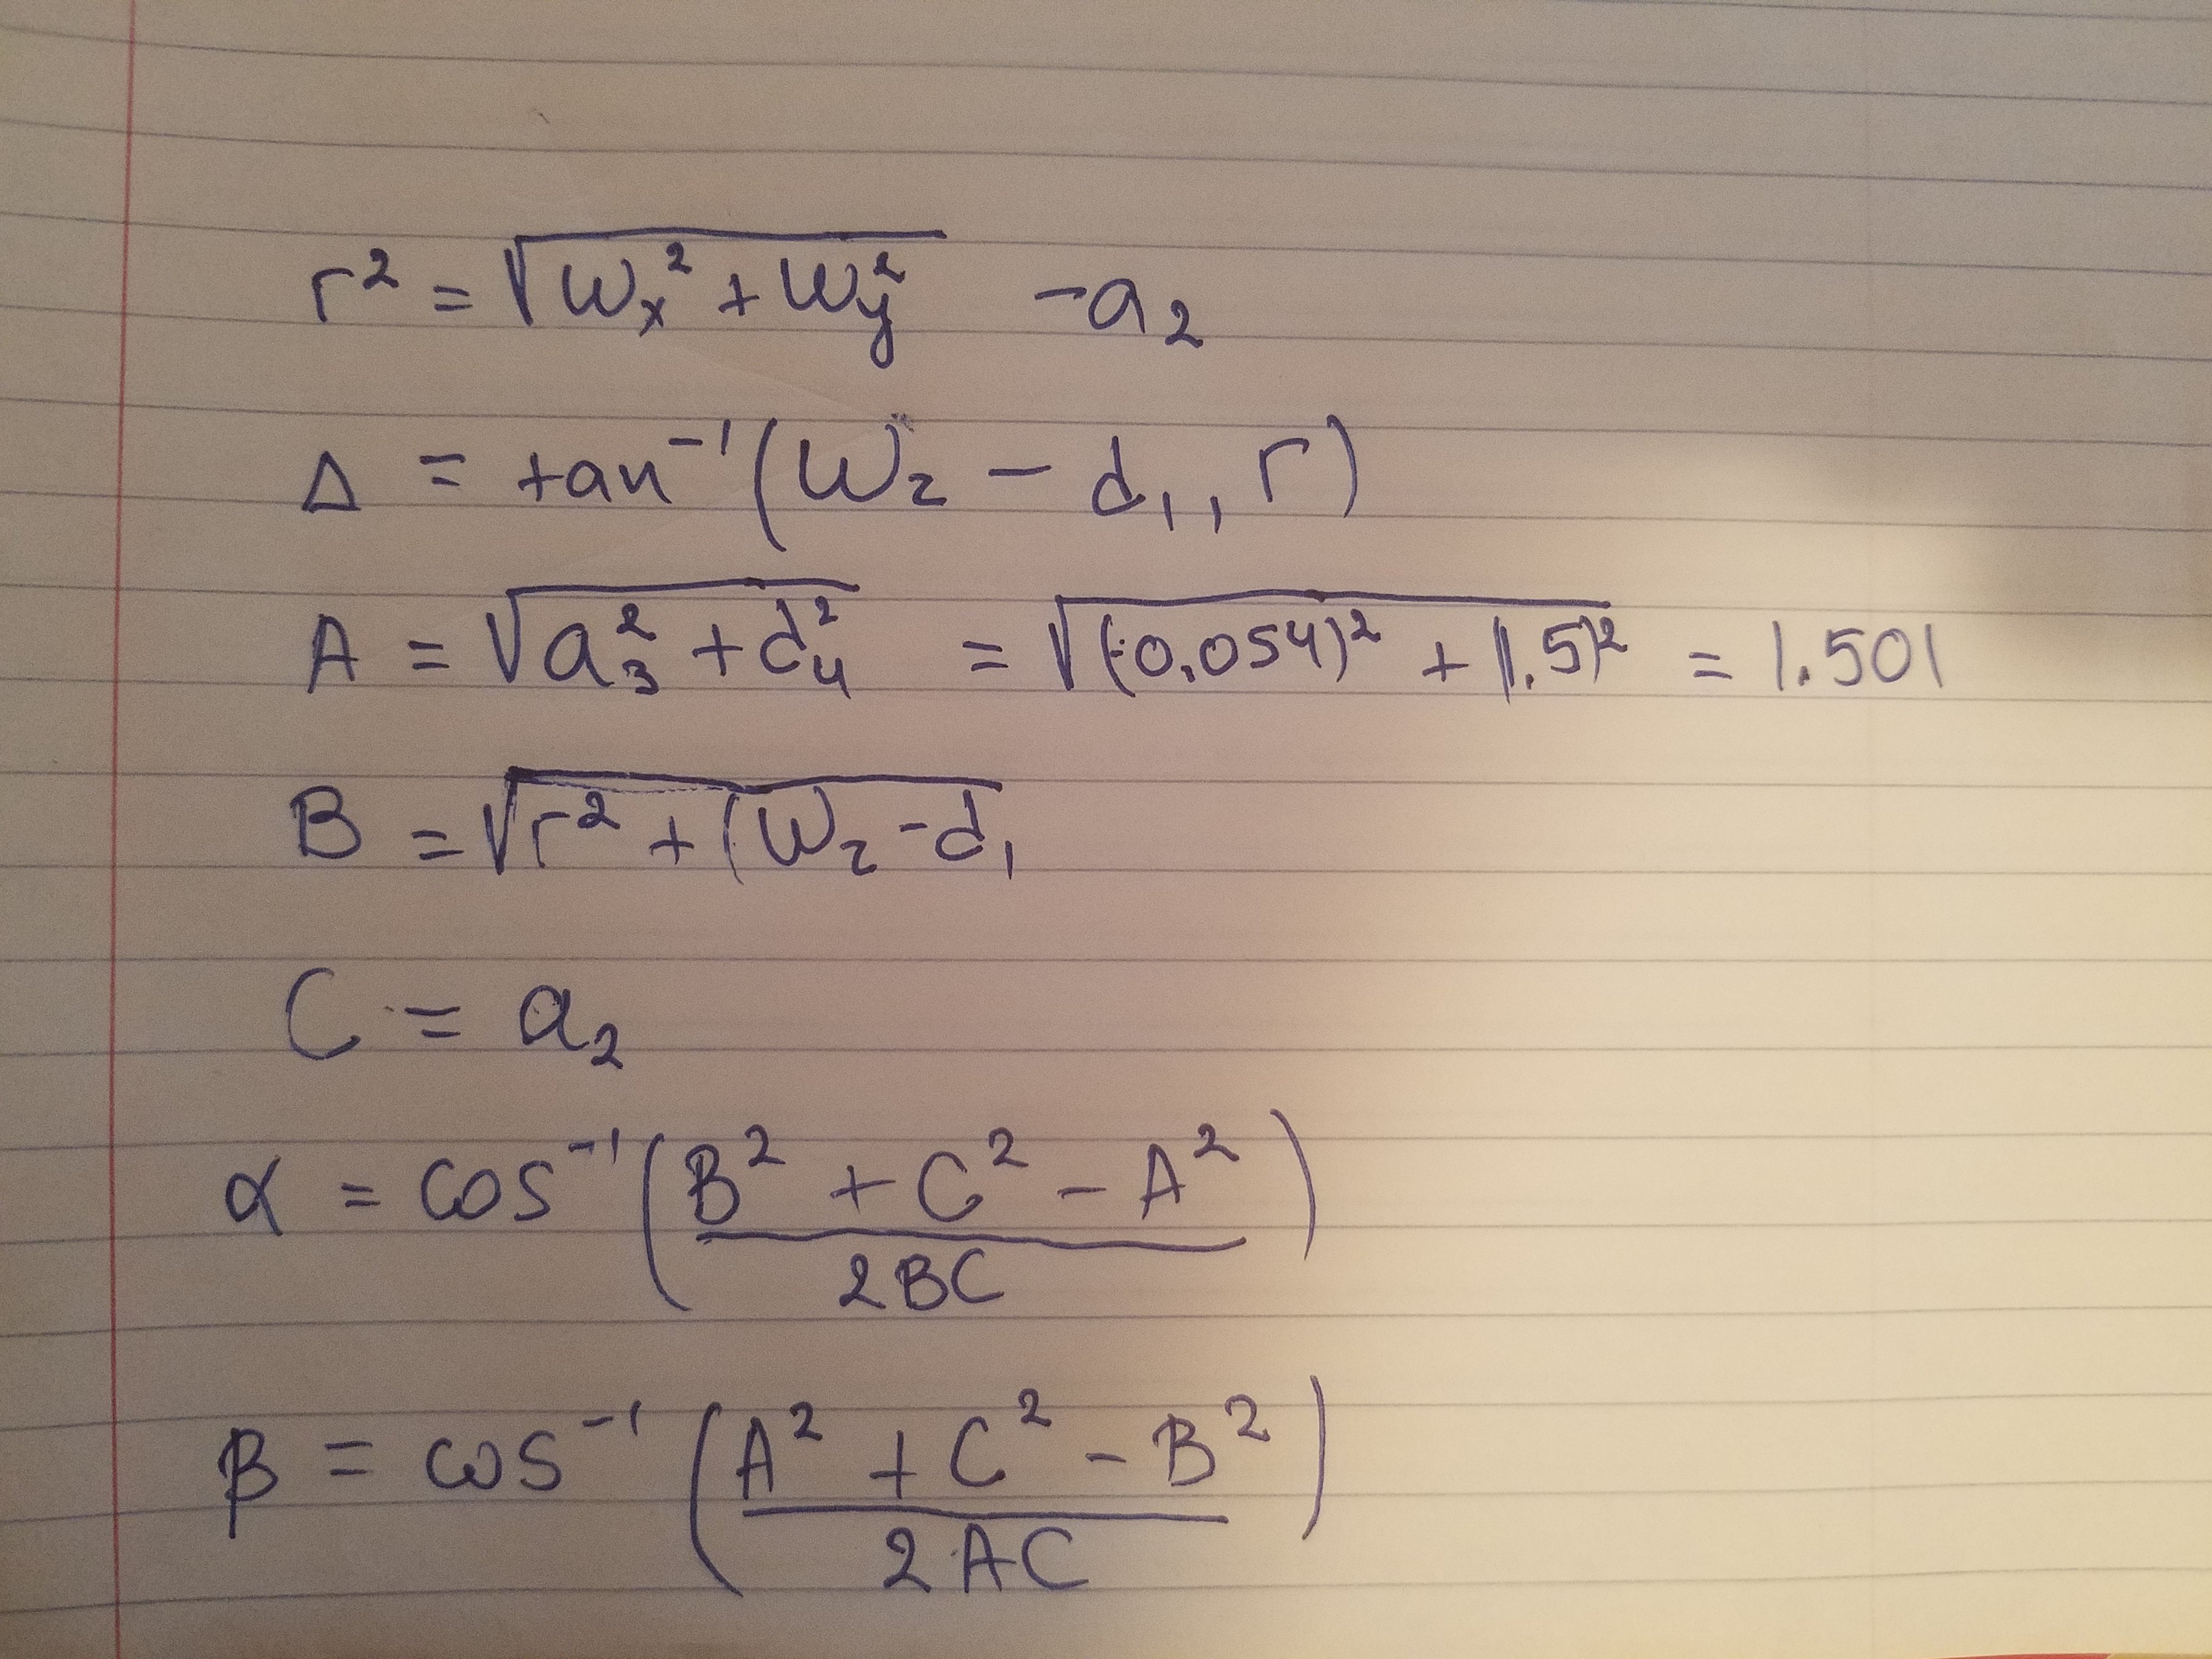 r² = √(Wx² + Wy²) - a₂
Δ = tan⁻¹(Wz - d₁, r)
A = √(a₃² + d₄²) = √((-0.054)² + (1.5)²) = 1.501
B = √(r² + (Wz - d₁
C = a₂
α = cos⁻¹((B² + C² - A²)/2BC)
β = cos⁻¹((A² + C² - B²)/2AC)